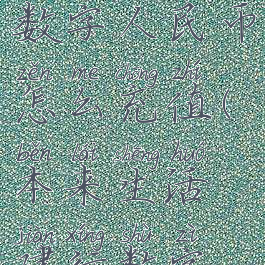 数字人民币
zěn me chōng zhí
怎么充值(
běn lái shēng huó
本来生活
jiàn xíng shù zì
建行数字